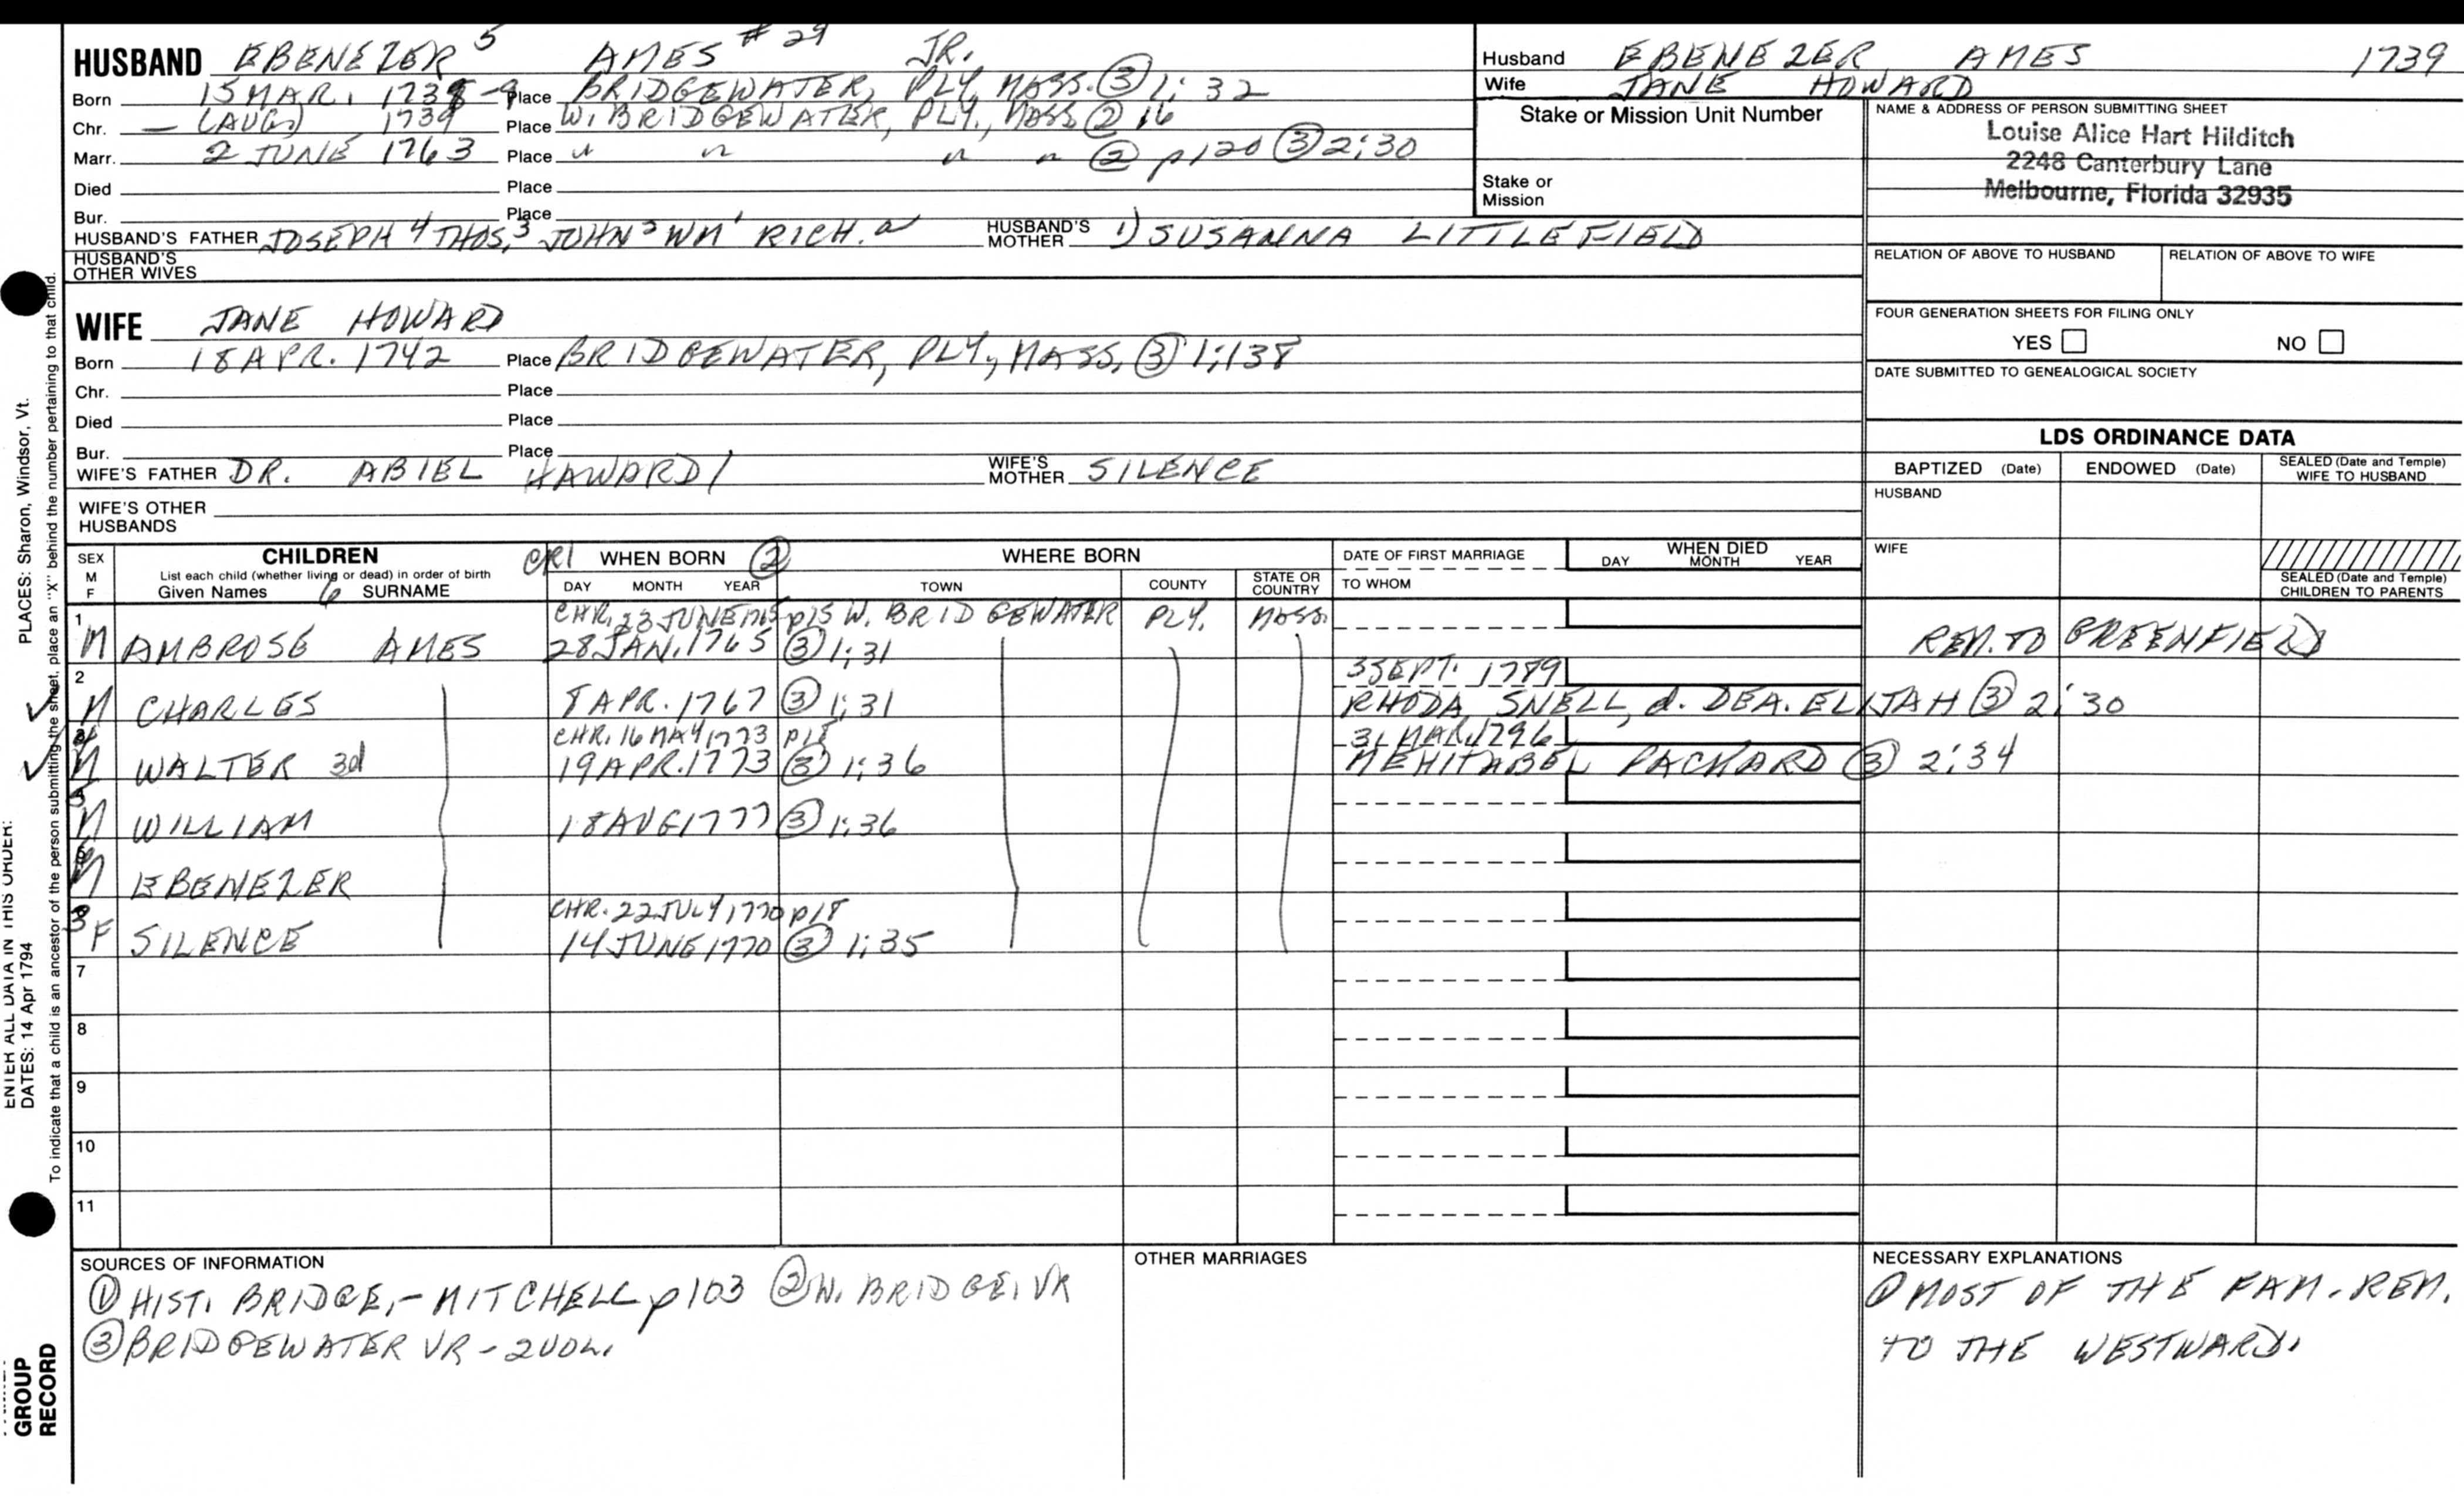 HUSBAND EBENEZER 5 AMES #29 JR.
Born 15 MAR. 1738-9 Place BRIDGEWATER, PLY. MASS. ③ 1:32
Chr. — (AUG) 1739 Place W. BRIDGEWATER, PLY., MASS ② 16
Marr. 2 JUNE 1763 Place " " " " ② p120 ③ 2:30
Died Place
Bur. Place
HUSBAND'S FATHER JOSEPH 4 THOS. 3 JOHN 2 WM 1 RICH. a HUSBAND'S MOTHER 1) SUSANNA LITTLEFIELD
HUSBAND'S OTHER WIVES
Husband EBENEZER AMES 1739
Wife JANE HOWARD
Stake or Mission Unit Number
Stake or Mission
NAME & ADDRESS OF PERSON SUBMITTING SHEET
Louise Alice Hart Hilditch
2248 Canterbury Lane
Melbourne, Florida 32935
RELATION OF ABOVE TO HUSBAND RELATION OF ABOVE TO WIFE
FOUR GENERATION SHEETS FOR FILING ONLY
YES NO
DATE SUBMITTED TO GENEALOGICAL SOCIETY
WIFE JANE HOWARD
Born 18 APR. 1742 Place BRIDGEWATER, PLY., MASS. ③ 1:138
Chr. Place
Died Place
Bur. Place
WIFE'S FATHER DR. ABIEL HAWARD/ WIFE'S MOTHER SILENCE
WIFE'S OTHER HUSBANDS
LDS ORDINANCE DATA
BAPTIZED (Date) ENDOWED (Date) SEALED (Date and Temple) WIFE TO HUSBAND
HUSBAND
WIFE
SEALED (Date and Temple) CHILDREN TO PARENTS
SEX M F
CHILDREN
List each child (whether living or dead) in order of birth
Given Names 6 SURNAME
CR1 WHEN BORN ②
DAY MONTH YEAR
WHERE BORN
TOWN COUNTY STATE OR COUNTRY
DATE OF FIRST MARRIAGE
TO WHOM
WHEN DIED
DAY MONTH YEAR
CHR. 23 JUNE 1765 p15 W. BRIDGEWATER PLY. MASS.
1 M AMBROSE AMES 28 JAN. 1765 ③ 1:31 REM. TO GREENFIELD
3 SEPT. 1789
2 M CHARLES 8 APR. 1767 ③ 1:31 RHODA SNELL, d. DEA. ELIJAH ③ 2:30
CHR. 16 MAY 1773 p18 31 MAR. 1796
4 M WALTER 3d 19 APR. 1773 ③ 1:36 MEHITABEL PACKARD ③ 2:34
5 M WILLIAM 18 AUG 1777 ③ 1:36
6 M EBENEZER
CHR. 22 JULY 1770 p18
3 F SILENCE 14 JUNE 1770 ③ 1:35
7
8
9
10
11
SOURCES OF INFORMATION
① HIST. BRIDGE.- MITCHELL p103 ② W. BRIDGE. VR
③ BRIDGEWATER VR - 2 VOL.
OTHER MARRIAGES
NECESSARY EXPLANATIONS
① MOST OF THE FAM. REM.
TO THE WESTWARD.
PLACES: Sharon, Windsor, Vt.
ENTER ALL DATA IN THIS ORDER:
DATES: 14 Apr 1794
To indicate that a child is an ancestor of the person submitting the sheet, place an "X" behind the number pertaining to that child.
GROUP
RECORD